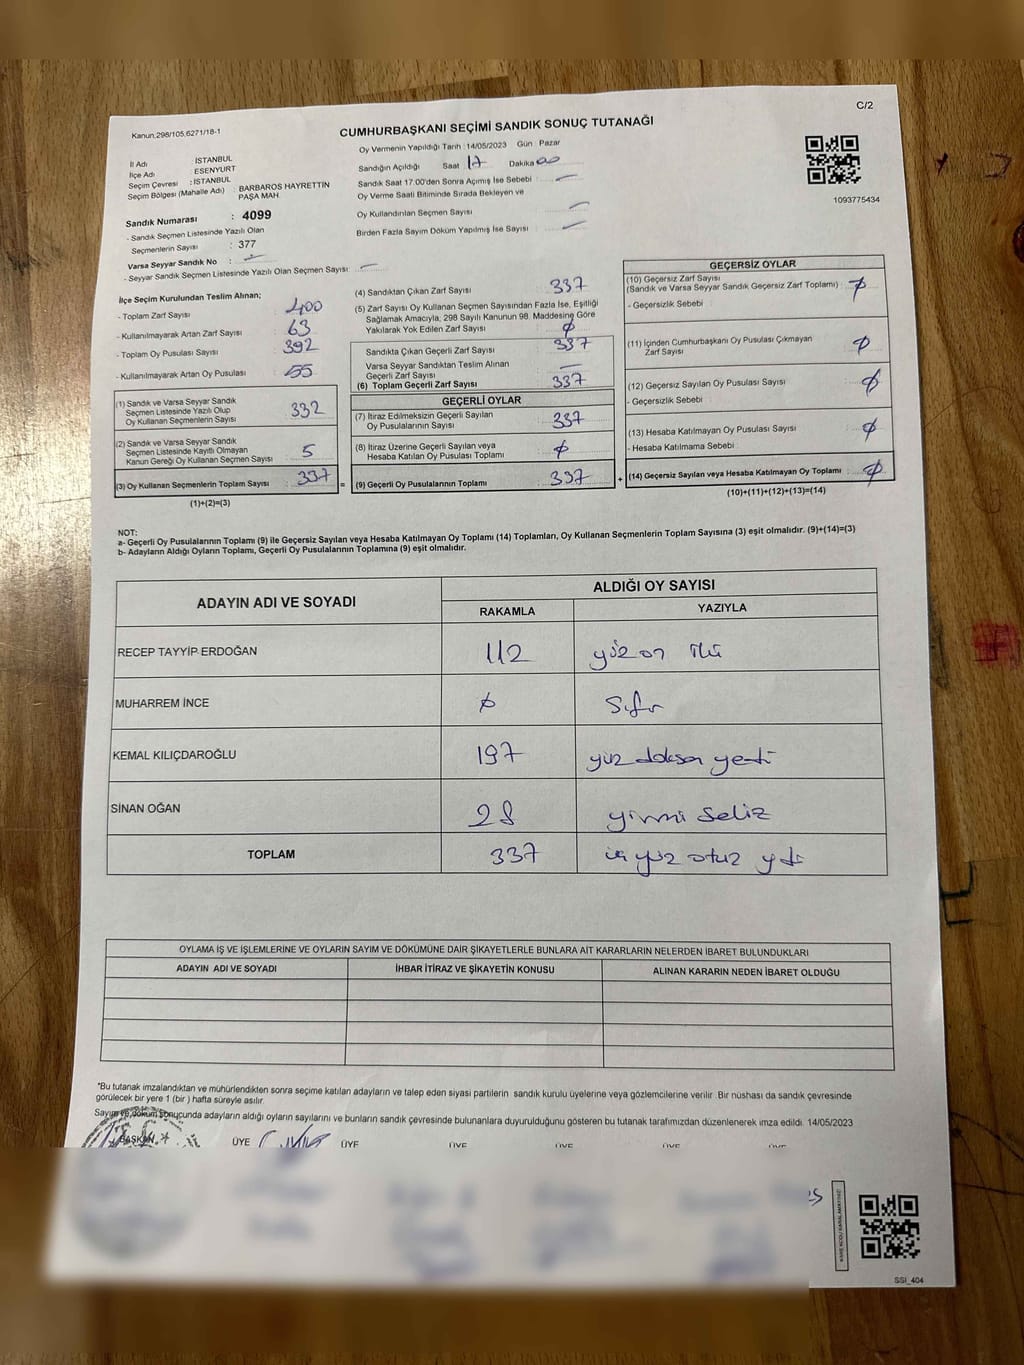 C/2
Kanun,298/105,6271/18-1
CUMHURBAŞKANI SEÇİMİ SANDIK SONUÇ TUTANAĞI
1093775434
İl Adı : İSTANBUL
İlçe Adı : ESENYURT
Seçim Çevresi : İSTANBUL
Seçim Bölgesi (Mahalle Adı) : BARBAROS HAYRETTIN
PAŞA MAH.
Sandık Numarası : 4099
- Sandık Seçmen Listesinde Yazılı Olan
Seçmenlerin Sayısı : 377
Varsa Seyyar Sandık No : -
- Seyyar Sandık Seçmen Listesinde Yazılı Olan Seçmen Sayısı: -
Oy Vermenin Yapıldığı Tarih : 14/05/2023 Gün Pazar
Sandığın Açıldığı Saat 17 Dakika 00
Sandık Saat 17.00'den Sonra Açımış İse Sebebi : -
Oy Verme Saati Bitiminde Sırada Bekleyen ve
Oy Kullandırılan Seçmen Sayısı : -
Birden Fazla Sayım Döküm Yapılmış İse Sayısı : -
İlçe Seçim Kurulundan Teslim Alınan;
- Toplam Zarf Sayısı : 400
- Kullanılmayarak Artan Zarf Sayısı : 63
- Toplam Oy Pusulası Sayısı : 392
- Kullanılmayarak Artan Oy Pusulası : 55
(1) Sandık ve Varsa Seyyar Sandık
Seçmen Listesinde Yazılı Olup
Oy Kullanan Seçmenlerin Sayısı : 332
(2) Sandık ve Varsa Seyyar Sandık
Seçmen Listesinde Kayıtlı Olmayan
Kanun Gereği Oy Kullanan Seçmen Sayısı : 5
(3) Oy Kullanan Seçmenlerin Toplam Sayısı : 337
(1)+(2)=(3)
=
(4) Sandıktan Çıkan Zarf Sayısı : 337
(5) Zarf Sayısı Oy Kullanan Seçmen Sayısından Fazla İse, Eşitliği
Sağlamak Amacıyla, 298 Sayılı Kanunun 98. Maddesine Göre
Yakılarak Yok Edilen Zarf Sayısı : ∅
Sandıkta Çıkan Geçerli Zarf Sayısı : 337
Varsa Seyyar Sandıktan Teslim Alınan
Geçerli Zarf Sayısı : -
(6) Toplam Geçerli Zarf Sayısı : 337
GEÇERLİ OYLAR
(7) İtiraz Edilmeksizin Geçerli Sayılan
Oy Pusulalarının Sayısı : 337
(8) İtiraz Üzerine Geçerli Sayılan veya
Hesaba Katılan Oy Pusulası Toplamı : ∅
(9) Geçerli Oy Pusulalarının Toplamı : 337
+
GEÇERSİZ OYLAR
(10) Geçersiz Zarf Sayısı
(Sandık ve Varsa Seyyar Sandık Geçersiz Zarf Toplamı) : ∅
- Geçersizlik Sebebi :
(11) İçinden Cumhurbaşkanı Oy Pusulası Çıkmayan
Zarf Sayısı : ∅
(12) Geçersiz Sayılan Oy Pusulası Sayısı : ∅
- Geçersizlik Sebebi :
(13) Hesaba Katılmayan Oy Pusulası Sayısı : ∅
- Hesaba Katılmama Sebebi :
(14) Geçersiz Sayılan veya Hesaba Katılmayan Oy Toplamı : ∅
(10)+(11)+(12)+(13)=(14)
NOT:
a- Geçerli Oy Pusulalarının Toplamı (9) ile Geçersiz Sayılan veya Hesaba Katılmayan Oy Toplamı (14) Toplamları, Oy Kullanan Seçmenlerin Toplam Sayısına (3) eşit olmalıdır. (9)+(14)=(3)
b- Adayların Aldığı Oyların Toplamı, Geçerli Oy Pusulalarının Toplamına (9) eşit olmalıdır.
ADAYIN ADI VE SOYADI ALDIĞI OY SAYISI
RAKAMLA YAZIYLA
RECEP TAYYİP ERDOĞAN 112 yüz on iki
MUHARREM İNCE ∅ Sıfır
KEMAL KILIÇDAROĞLU 197 yüz doksan yedi
SİNAN OĞAN 28 yirmi sekiz
TOPLAM 337 üç yüz otuz yedi
OYLAMA İŞ VE İŞLEMLERİNE VE OYLARIN SAYIM VE DÖKÜMÜNE DAİR ŞİKAYETLERLE BUNLARA AİT KARARLARIN NELERDEN İBARET BULUNDUKLARI
ADAYIN ADI VE SOYADI İHBAR İTİRAZ VE ŞİKAYETİN KONUSU ALINAN KARARIN NEDEN İBARET OLDUĞU
"Bu tutanak imzalandıktan ve mühürlendikten sonra seçime katılan adayların ve talep eden siyasi partilerin sandık kurulu üyelerine veya gözlemcilerine verilir. Bir nüshası da sandık çevresinde
görülecek bir yere 1 (bir ) hafta süreyle asılır.
Sayım ve döküm sonucunda adayların aldığı oyların sayılarını ve bunların sandık çevresinde bulunanlara duyurulduğunu gösteren bu tutanak tarafımızdan düzenlenerek imza edildi. 14/05/2023
BAŞKAN ÜYE ÜYE ÜYE ÜYE ÜYE ÜYE
SSI_404